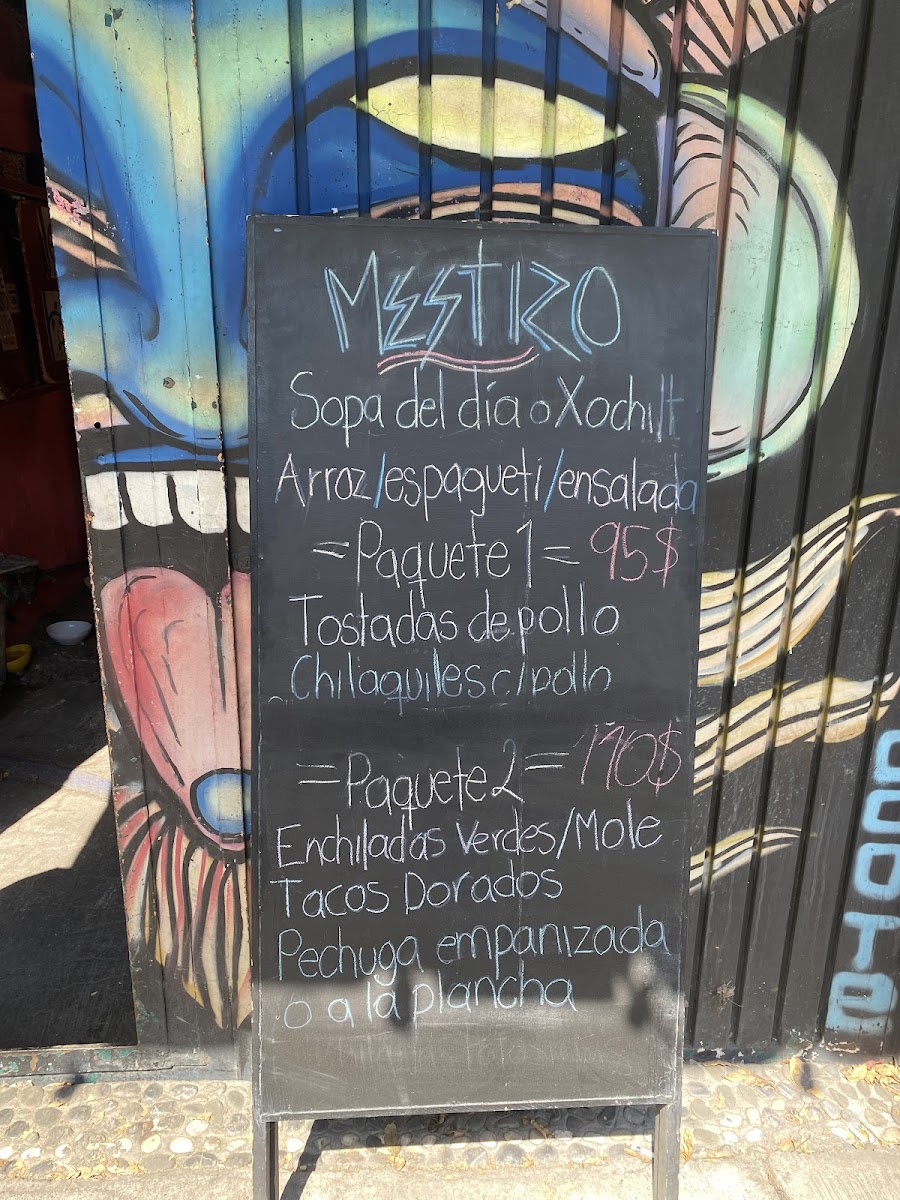 MESTIZO
Sopa del día o Xochilt
Arroz/espagueti/ensalada
=Paquete 1= 95$
Tostadas de pollo
Chilaquiles c/pollo
=Paquete 2= 110$
Enchiladas Verdes/Mole
Tacos Dorados
Pechuga empanizada
o a la plancha